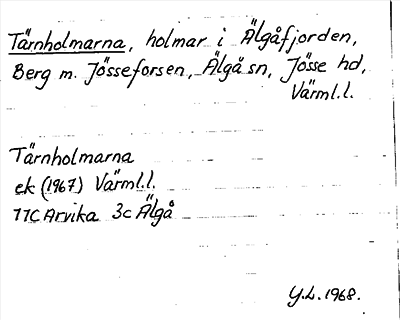 Tärnholmarna, holmar i Älgåfjorden,
Berg m. Jösseforsen, Älgå sn, Jösse hd,
Värml.l.
Tärnholmarna
ek (1967) Värml.l.
11C Arvika 3c Älgå
Y.L. 1968.